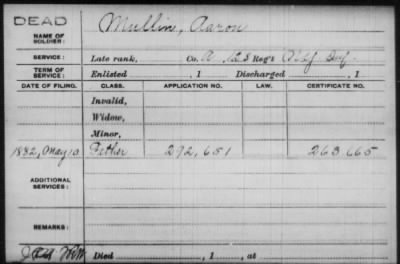 DEAD
NAME OF SOLDIER: Mullin, Aaron
SERVICE: Late rank, Co. A, 128 Reg't O. V. Inf.
TERM OF SERVICE: Enlisted , 1 Discharged , 1
DATE OF FILING. CLASS. APPLICATION NO. LAW. CERTIFICATE NO.
Invalid,
Widow,
Minor,
1882, May 10 Father 292,651 263,665
ADDITIONAL SERVICES:
REMARKS:
Died , 1 , at